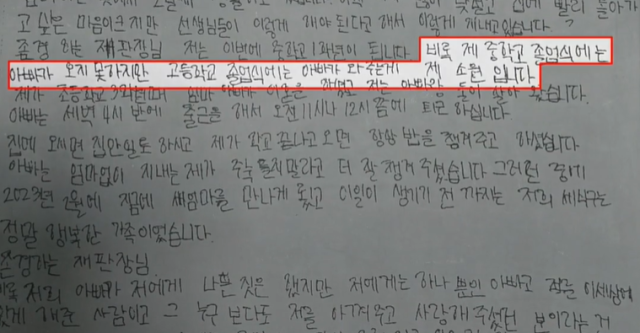 고 싶은 마음이크지만 선생님들이 이렇게 해야 된다고 해서 이렇게 지내고있습니다.
존경 하는 재판장님 저는 이번에 중학교 1학년이 됩니다. 비록 제 중학교 졸업식에는
아빠가 오지 못하지만 고등학교 졸업식에는 아빠가 와주는게 제 소원 입니다.
제가 초등학교 3학년때 엄마 아빠가 이혼을 하였고 저는 아빠랑 둘이 살아 왔습니다.
아빠는 새벽 4시 반에 출근을 해서 오전 11시나 12시 쯤에 퇴근 하십니다.
집에 오시면 집안일도 하시고 제가 학교 끝나고 오면 항상 밥을 챙겨주고 하셨습니다.
아빠는 엄마없이 지내는 제가 주눅 들지말라고 더 잘 챙겨 주셨습니다 그러던 중에
2023년 2월에 지금에 새엄마를 만나게 됐고 이일이 생기기 전 까지는 저희 세식구는
정말 행복한 가족이었습니다.
존경하는 재판장님.
저희 아빠가 저에게 나쁜 짓은 했지만 저에게는 하나 뿐인 아빠고 저를 이세상에
해준 사람이고 그 누구 보다도 저를 아껴주고 사랑해 주셨던 보이라는 거